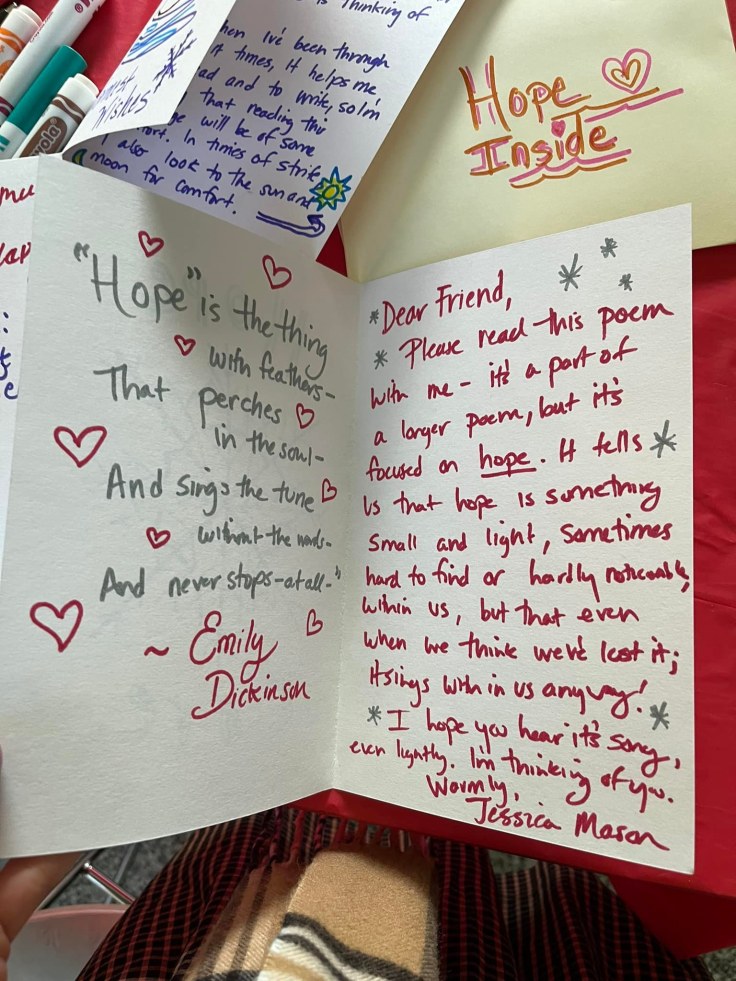 is thinking of
I've been through
times, it helps me
ad and to write, so I'm
that reading this
will be of some
ort. In times of strife
I also look to the sun and
moon for comfort.
Wishes
Hope
Inside
"Hope" is the thing
with feathers-
That perches
in the soul-
And sings the tune
without the words-
And never stops-at all-"
~ Emily
Dickinson
Dear Friend,
Please read this poem
with me - it's a part of
a longer poem, but it's
focused on hope. It tells
us that hope is something
small and light, sometimes
hard to find or hardly noticeable,
within us, but that even
when we think we've lost it;
it sings within us anyway!
I hope you hear it's song,
even lightly. I'm thinking of you.
Warmly,
Jessica Mason